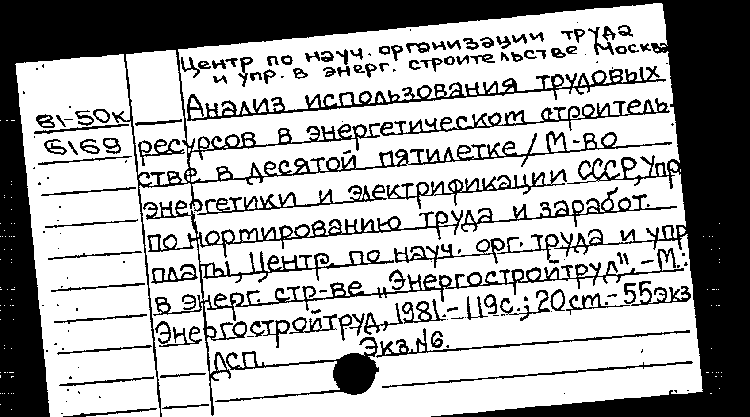 Центр по науч. организации труда
и упр. в энерг. строительстве. Москва
81-50к Анализ использования трудовых
6169 ресурсов в энергетическом строитель-
стве в десятой пятилетке / М-во
энергетики и электрификации СССР, Упр
по нормированию труда и заработ.
платы, Центр. по науч. орг. труда и упр
в энерг. стр-ве „Энергостройтруд". - М.:
Энергостройтруд, 1981. - 119с.; 20см. - 55экз
ДСП. Экз.№6.